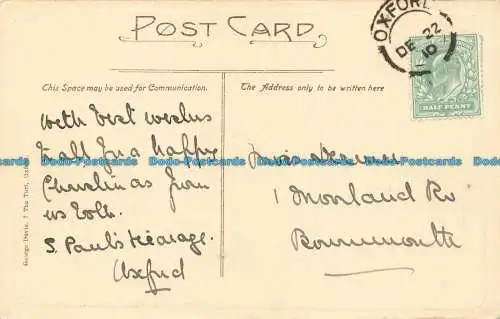 POST CARD
OXFORD
DE 22
10
HALF PENNY
This Space may be used for Communication.
The Address only to be written here
With best wishes
to all for a happy
Christmas from
us both.
S. Paul's Vicarage.
Oxford
1 Moorland Rd
Bournemouth
George Davis, 7 The Turl,
Todo-Postcards Todo-Postcards Todo-Postcards Todo-Postcards